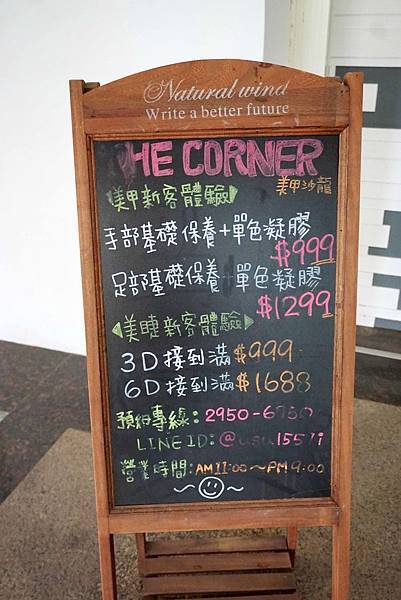 Natural wind
Write a better future
THE CORNER
美甲沙龍
美甲新客體驗
手部基礎保養+單色凝膠
$999
足部基礎保養+單色凝膠
$1299
美睫新客體驗
3D接到滿$999.
6D接到滿$1688
預約專線:
LINE ID:
營業時間:AM11:00~PM9:00